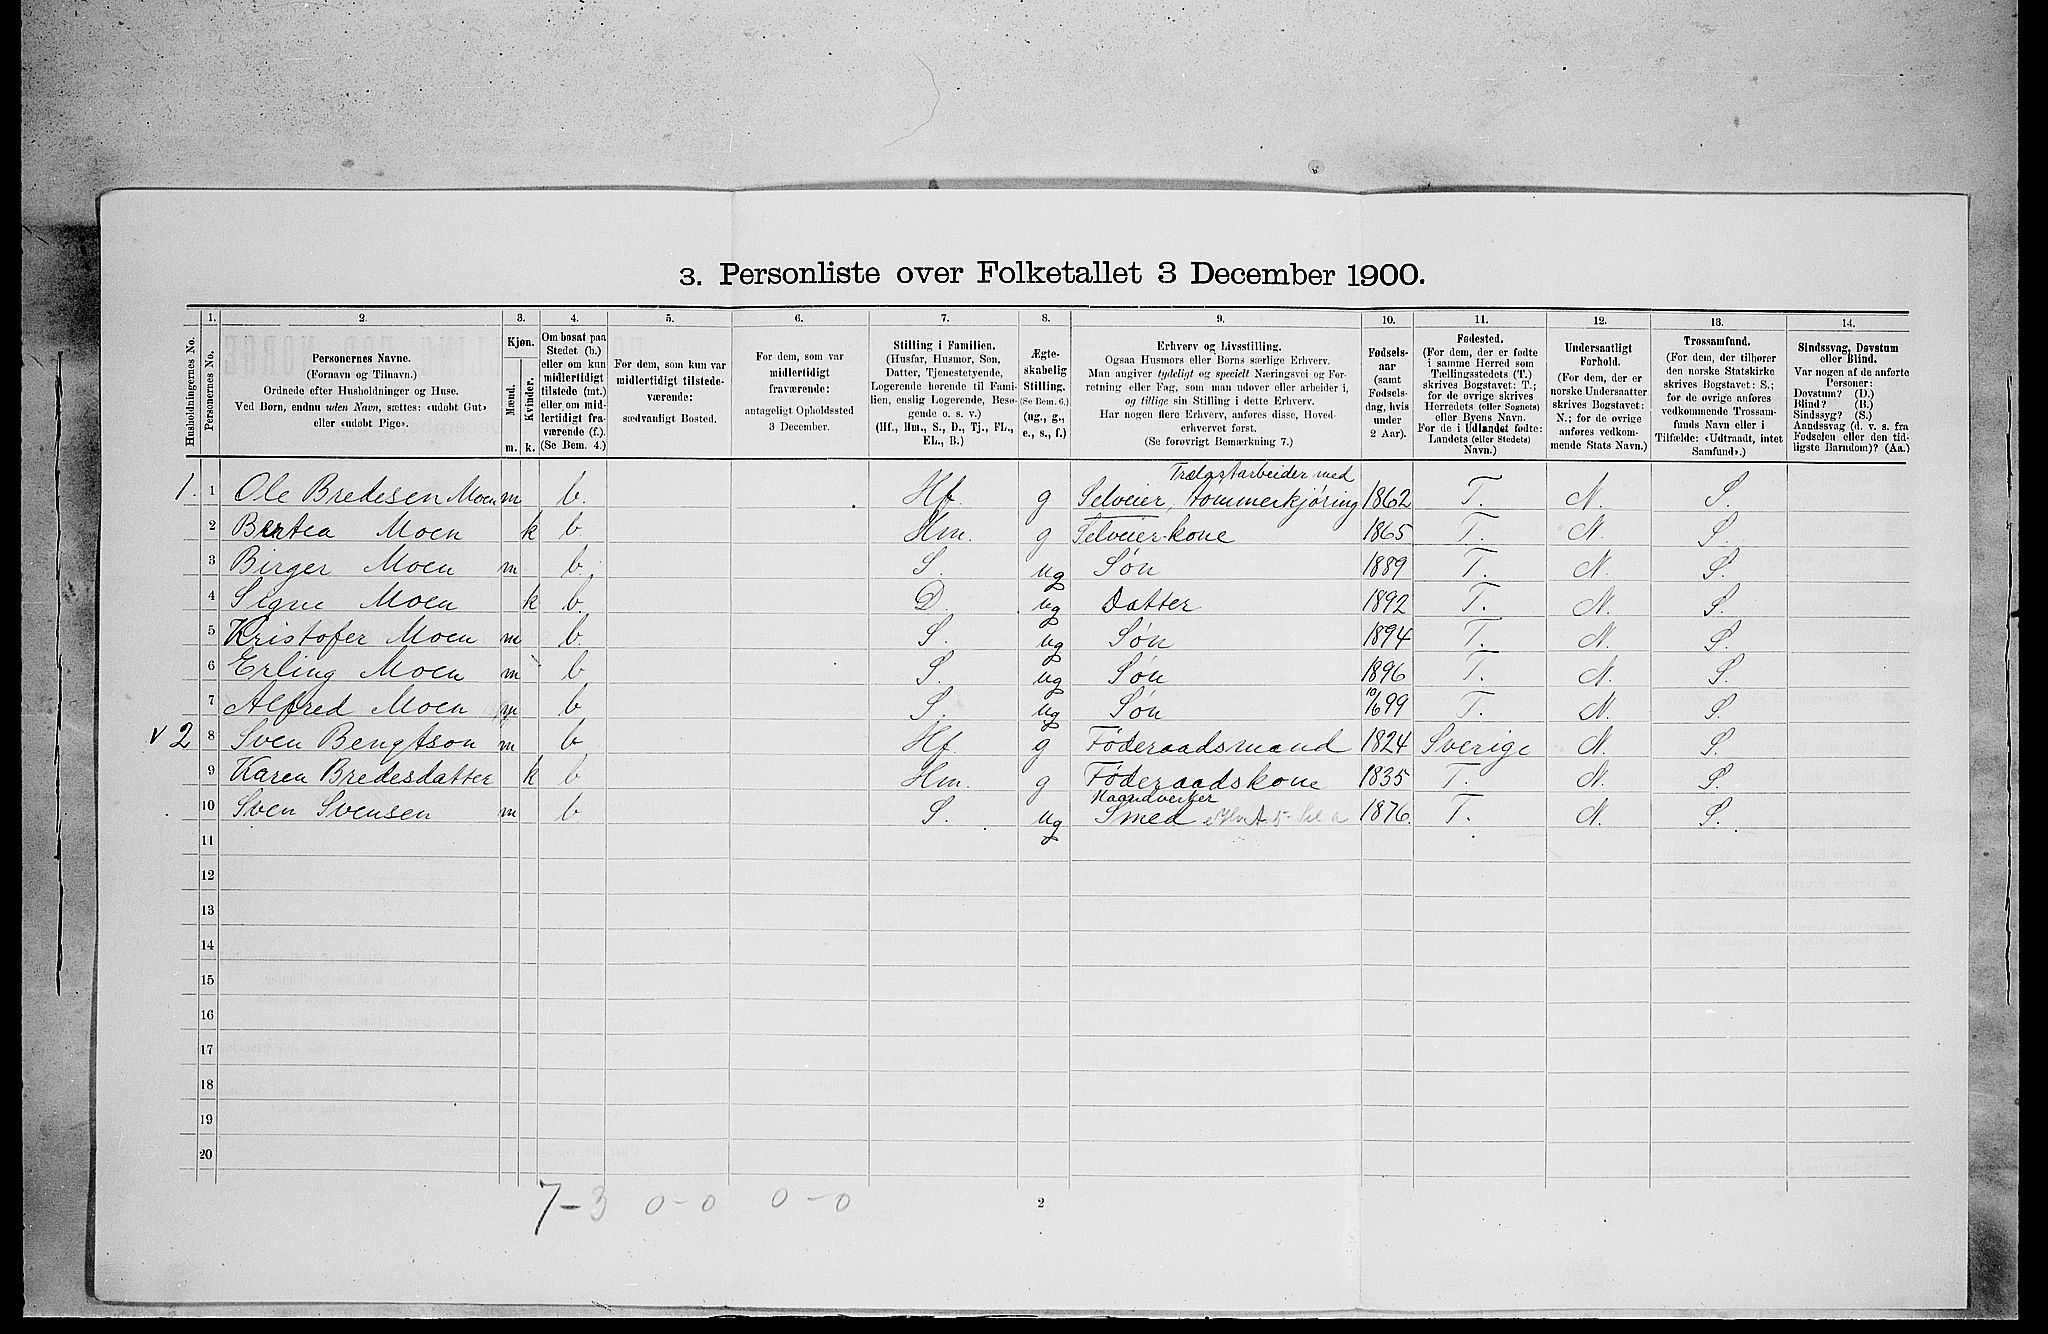 3. Personliste over Folketallet 3 December 1900.
Husholdningernes No.
1.
Personernes No.
2.
Personernes Navne.
(Fornavn og Tilnavn.)
Ordnede efter Husholdninger og Huse.
Ved Børn, endnu uden Navn, sættes: «udobt Gut»
eller «udobt Pige».
3.
Kjøn.
Mænd.
Kvinder.
m. k.
4.
Om bosat paa
Stedet (b.)
eller om kun
midlertidigt
tilstede (mt.)
eller om mid-
lertidigt fra-
værende (f.)
(Se Bem. 4.)
5.
For dem, som kun var
midlertidigt tilstede-
værende:
sædvanligt Bosted.
6.
For dem, som var
midlertidigt
fraværende:
antageligt Opholdssted
3 December.
7.
Stilling i Familien.
(Husfar, Husmor, Søn,
Datter, Tjenestetyende,
Logerende hørende til Fami-
lien, enslig Logerende, Besø-
gende o. s. v.)
(Hf., Hm., S., D., Tj., FL.,
EL., B.)
8.
Ægte-
skabelig
Stilling.
(Se Bem. 6.)
(ug., g.,
e., s., f.)
9.
Erhverv og Livsstilling.
Ogsaa Husmors eller Børns særlige Erhverv.
Man angiver tydeligt og specielt Næringsvei og For-
retning eller Fag, som man udøver eller arbeider i,
og tillige sin Stilling i dette Erhverv.
Har nogen flere Erhverv, anføres disse, Hoved-
erhvervet først.
(Se forøvrigt Bemærkning 7.)
10.
Fødsels-
aar
(samt
Fødsels-
dag, hvis
under
2 Aar).
11.
Fødested.
(For dem, der er fødte
i samme Herred som
Tællingsstedets (T.)
skrives Bogstavet: T.;
for de øvrige skrives
Herredets (eller Sognets)
eller Byens Navn.
For de i Udlandet fødte:
Landets (eller Stedets)
Navn.)
12.
Undersaatligt
Forhold.
(For dem, der er
norske Undersaatter
skrives Bogstavet:
N.; for de øvrige
anføres vedkom-
mende Stats Navn.)
13.
Trossamfund.
(For dem, der tilhører
den norske Statskirke
skrives Bogstavet: S.;
for de øvrige anføres
vedkommende Trossam-
funds Navn eller i
Tilfælde: «Udtraadt, intet
Samfund».)
14.
Sindssvag, Døvstum
eller Blind.
Var nogen af de anførte
Personer:
Døvstum? (D.)
Blind? (B.)
Sindssyg? (S.)
Aandssvag (d. v. s. fra
Fødselen eller den tid-
ligste Barndom)? (Aa.)
Trælastarbeider med
1. 1 Ole Bredesen Moen m b. Hf. g Selveier, tommerkjøring 1862 T. N. S.
2 Bertea Moen k b. Hm. g Selveierkone 1865 T. N. S.
3 Birger Moen m b. S. ug Søn 1889 T. N. S.
4 Signe Moen k b. D. ug Datter 1892 T. N. S.
5 Kristofer Moen m b. S. ug Søn 1894 T. N. S.
6 Erling Moen m b S. ug Søn 1896 T. N. S.
7 Alfred Moen m b S. ug Søn 10/6 99 T. N. S.
v 2 8 Sven Bengtson m b Hf. g Føderaadsmand 1824 Sverige N. S.
9 Karen Bredesdatter k b Hm. g Føderaadskone 1835 T. N. S.
Haandverker
10 Sven Svensen m b S. ug Smed 1876. T. N. S.
11
12
13
14
15
16
17
18
19
20
7-3 0-0 0-0
2